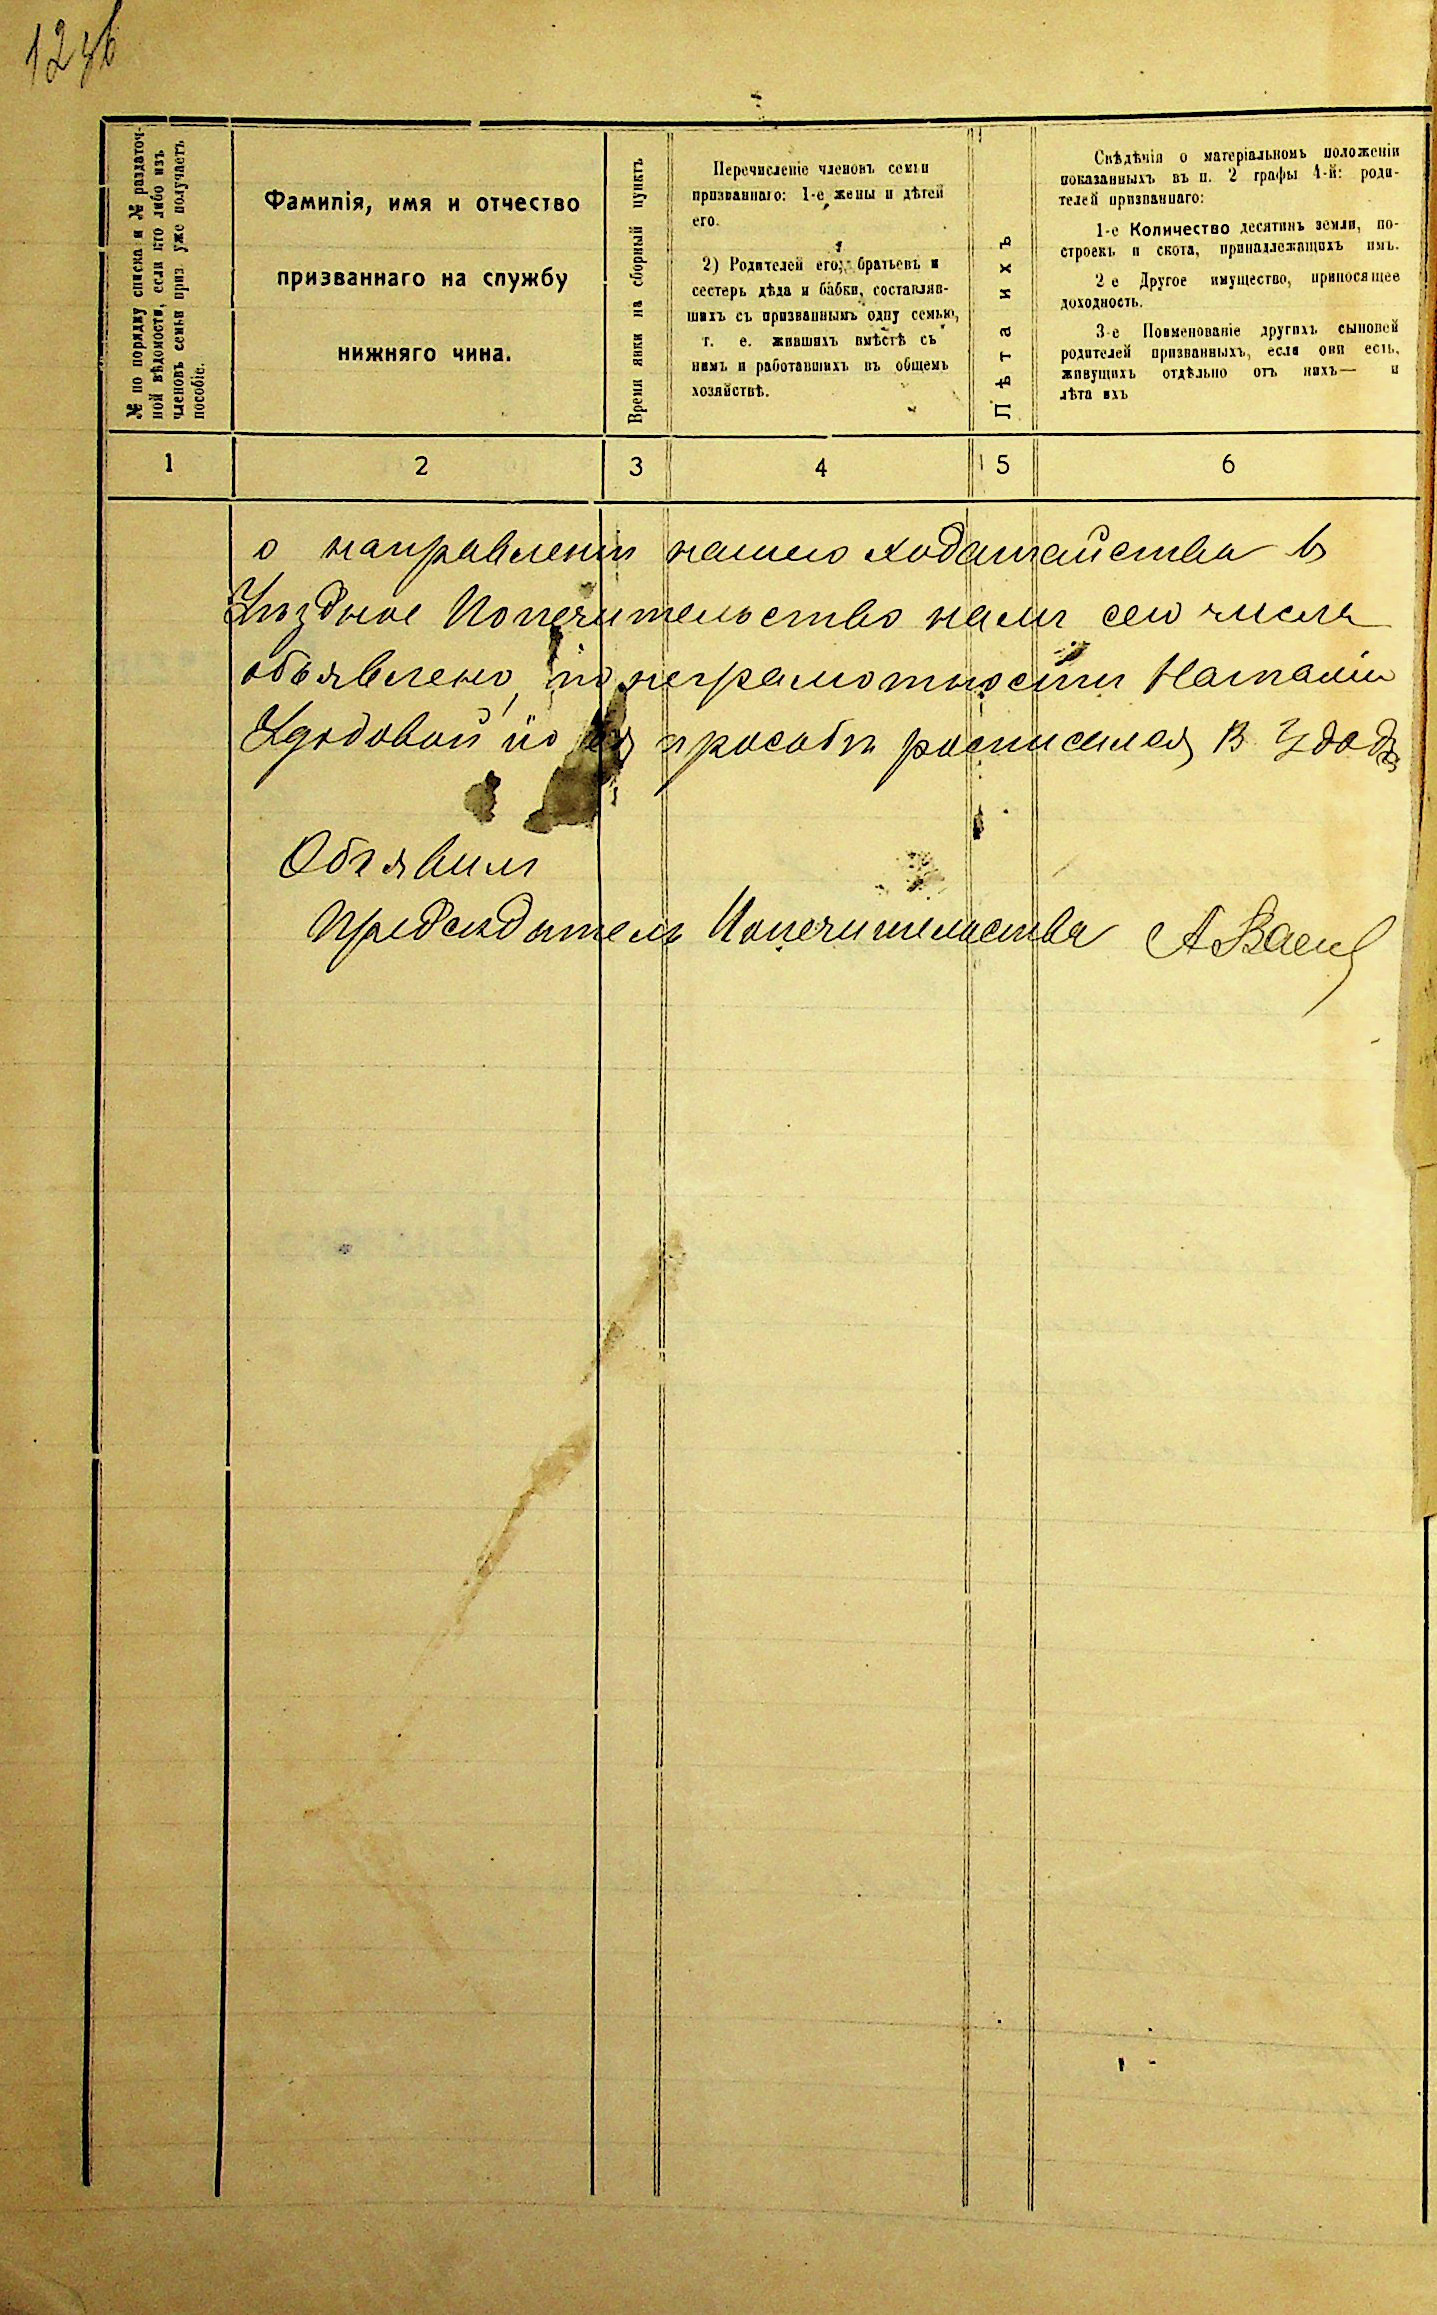 № по порядку списка и № раздаточ-
ной вѣдомости, если кто либо изъ
членовъ семьи приз. уже получаетъ
пособіе.
Фамилія, имя и отчество
призваннаго на службу
нижняго чина.
Время явки на сборный пунктъ
Перечисленіе членовъ семьи
призваннаго: 1-е жены и дѣтей
его.
2) Родителей его, братьевъ и
сестеръ дѣда и бабки, составляв-
шихъ съ призваннымъ одну семью,
т. е. жившихъ вмѣстѣ съ
нимъ и работавшихъ въ общемъ
хозяйствѣ.
Лѣта ихъ
Свѣдѣнія о матеріальномъ положеніи
показанныхъ въ п. 2 графы 4-й: роди-
телей призваннаго:
1-е Количество десятинъ земли, по-
строекъ и скота, принадлежащихъ имъ.
2 е Другое имущество, приносящее
доходность.
3-е Поименованіе другихъ сыновей
родителей призванныхъ, если они есть,
живущихъ отдѣльно отъ нихъ— и
лѣта ихъ
1 2 3 4 5 6
о направленіи нашего ходатайства в
Уѣздное Попечительство намъ сего числа
объявлено, по неграмотности Наталіи
Удодовой по ея просьбѣ росписался В. Удодъ
Объявилъ
Предсѣдатель Попечительства